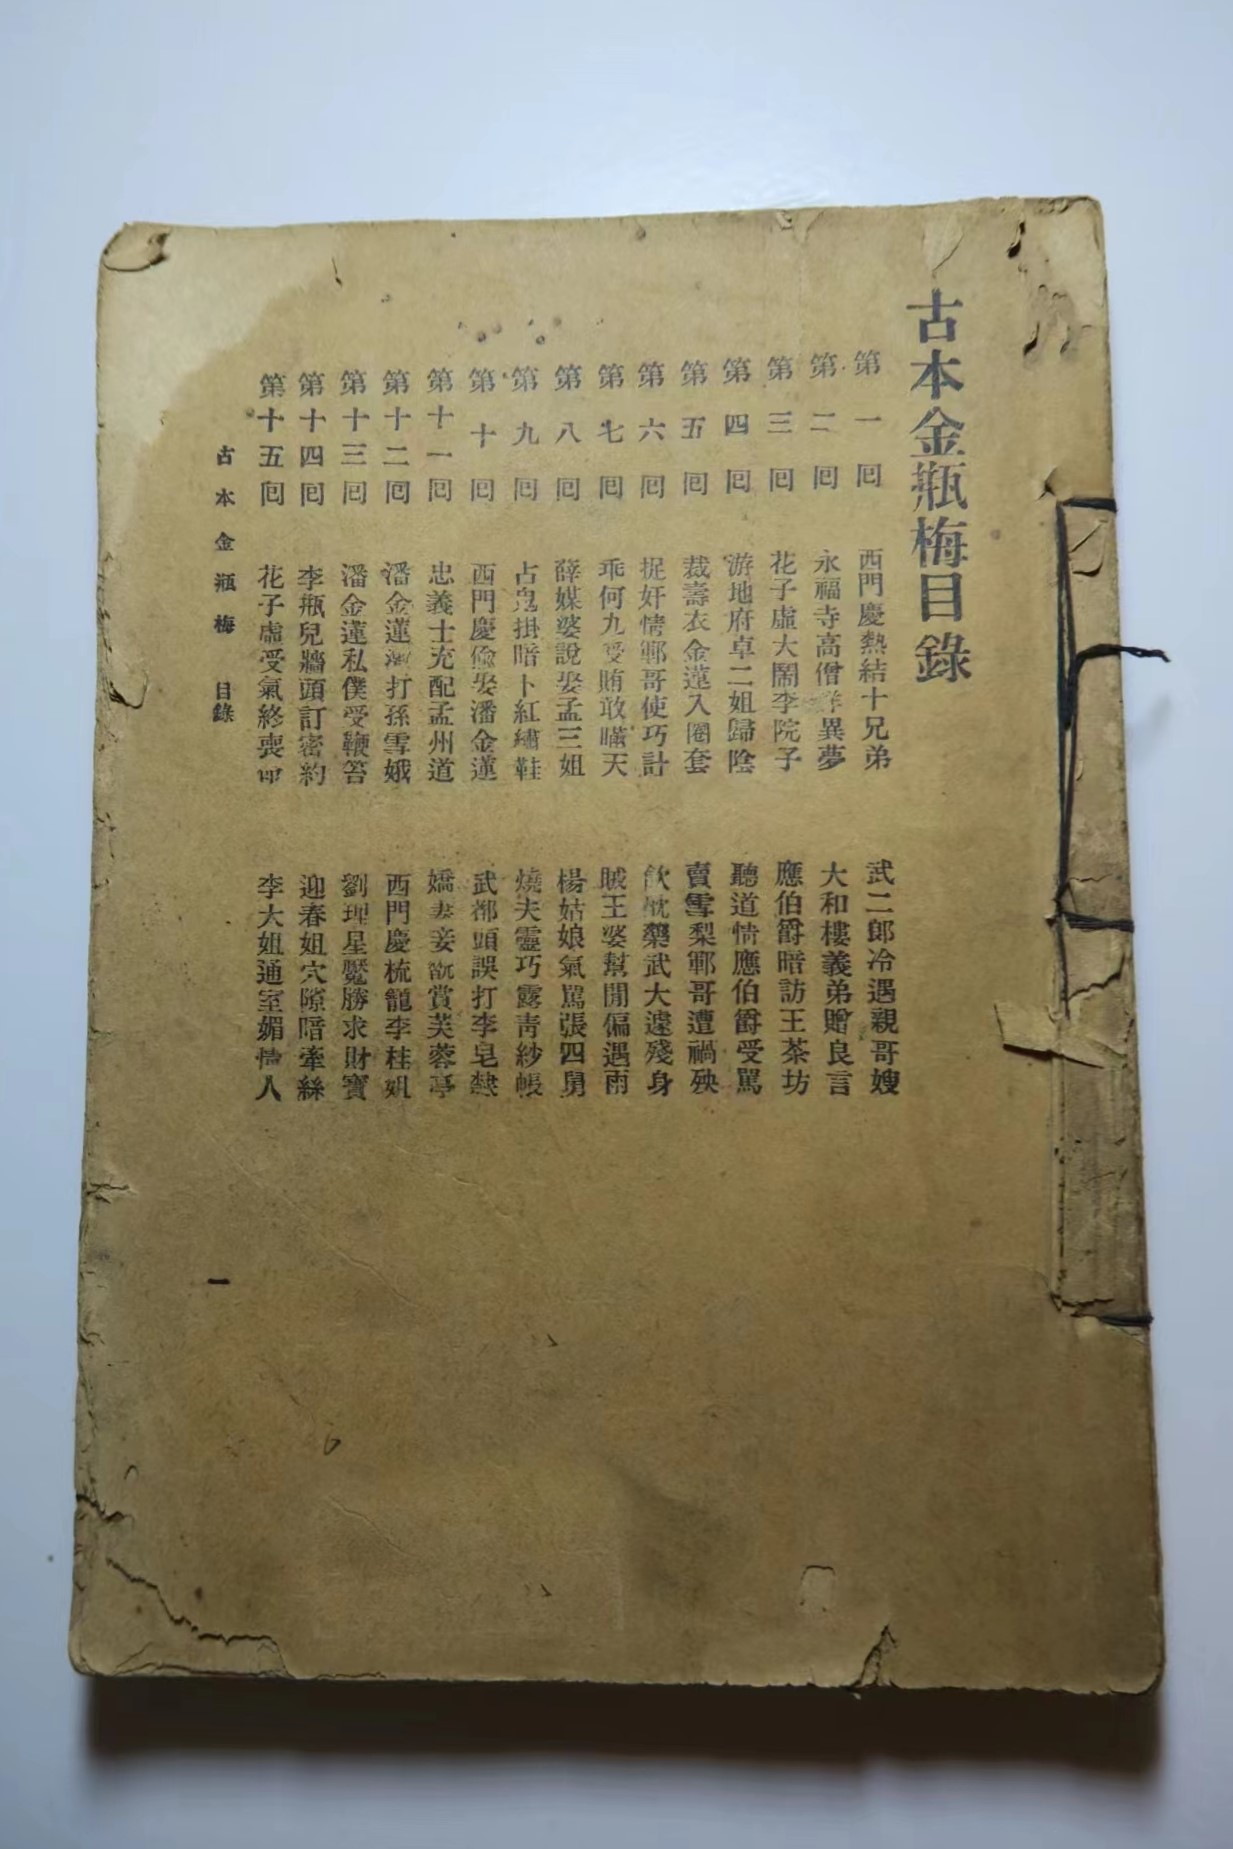 古本金瓶梅目錄
第一囘 西門慶熱結十兄弟 武二郎冷遇親哥嫂
第二囘 永福寺高僧詳異夢 大和樓義弟贈良言
第三囘 花子虛大鬧李院子 應伯爵暗訪王茶坊
第四囘 游地府卓二姐歸陰 聽道情應伯爵受罵
第五囘 裁壽衣金蓮入圈套 賣雪梨鄆哥遭禍殃
第六囘 捉奸情鄆哥使巧計 飲酖藥武大遽殘身
第七囘 乖何九受賄敢瞞天 賊王婆幫閒偏遇雨
第八囘 薛媒婆說娶孟三姐 楊姑娘氣罵張四舅
第九囘 占鬼掛暗卜紅繡鞋 燒夫靈巧露靑紗帳
第十囘 西門慶偷娶潘金蓮 武都頭誤打李皂隸
第十一囘 忠義士充配孟州道 嬌妻妾翫賞芙蓉亭
第十二囘 潘金蓮激打孫雪娥 西門慶梳籠李桂姐
第十三囘 潘金蓮私僕受鞭笞 劉理星魘勝求財寶
第十四囘 李瓶兒牆頭訂密約 迎春姐穴隙暗牽絲
第十五囘 花子虛受氣終喪命 李大姐通室媚情人
古本金瓶梅 目錄
一